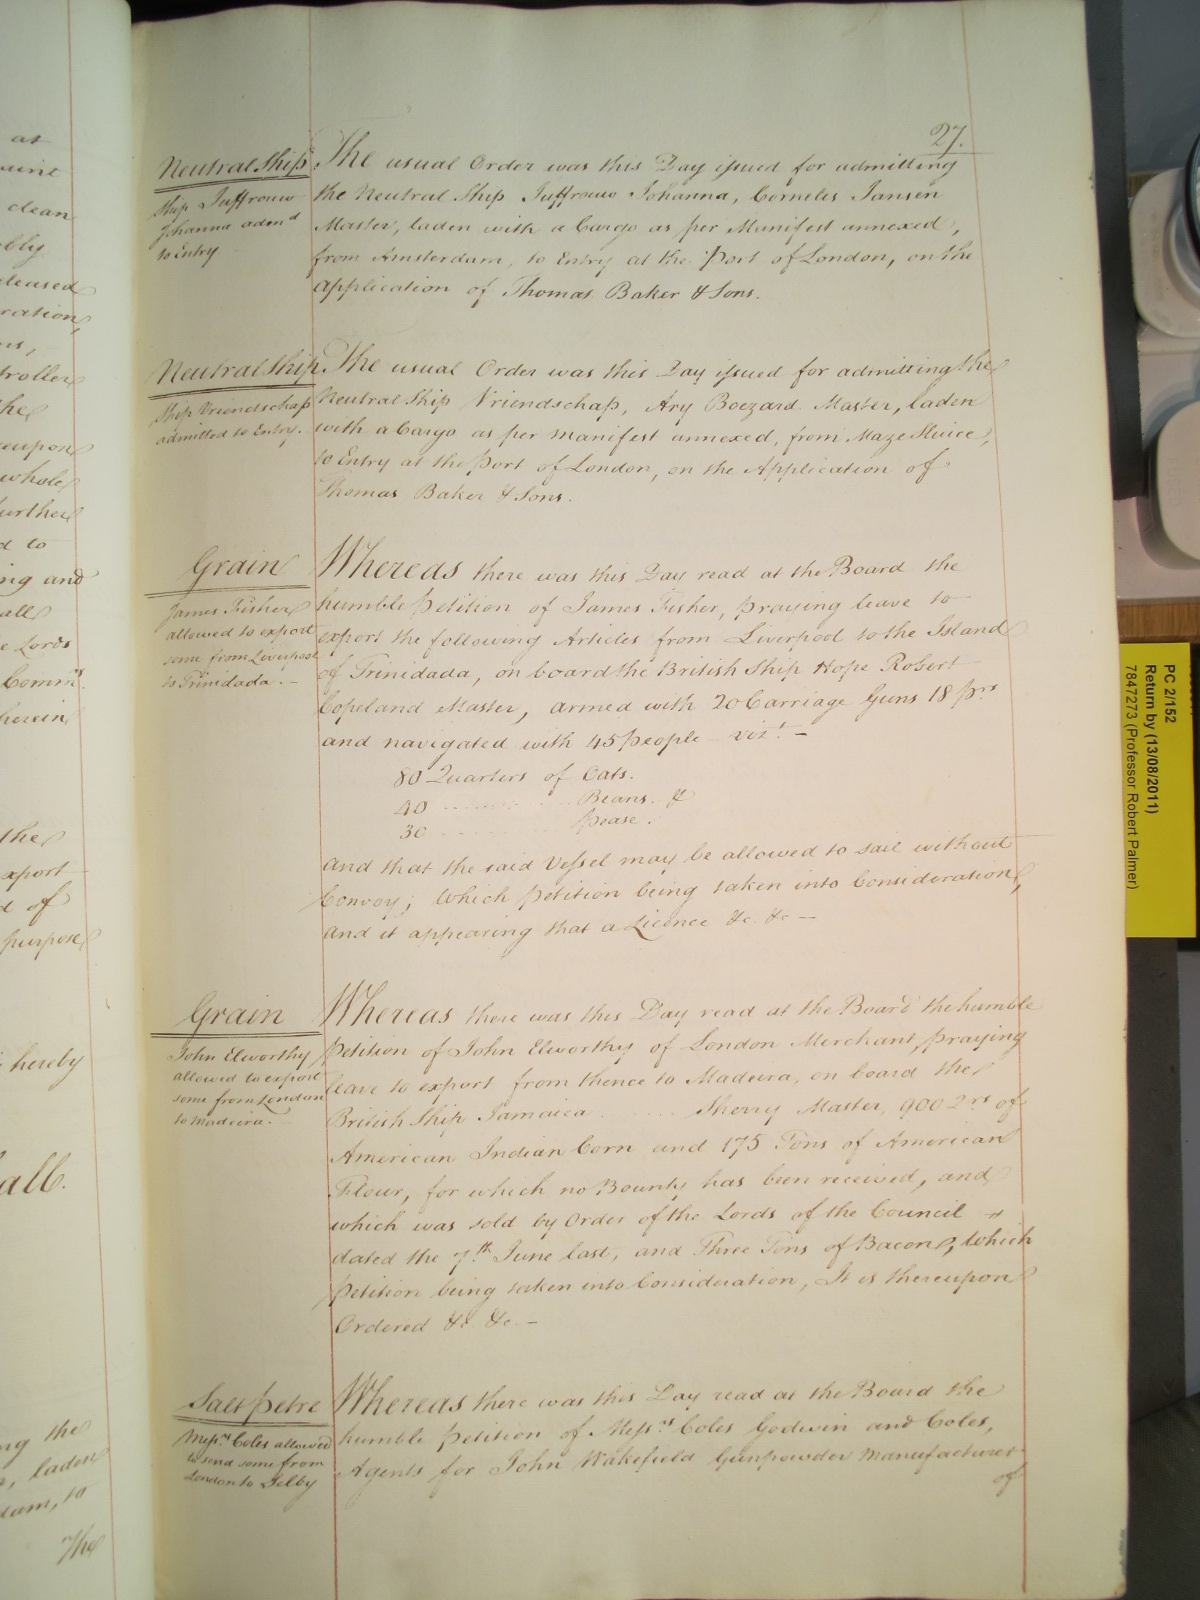 27.
Neutral Ship
Ship Juffrouw
Johanna adm.d
to Entry
The usual Order was this Day issued for admitting
the Neutral Ship Juffrouw Johanna, Cornelis Jansen
Master, laden with a Cargo as per Manifest annexed,
from Amsterdam, to Entry at the Port of London, on the
Application of Thomas Baker & Sons.
Neutral Ship
Ship Vriendschap
admitted to Entry.
The usual Order was this Day issued for admitting the
Neutral Ship Vriendschap, Ary Boezard Master, laden
with a Cargo as per manifest annexed, from Maze Sluice,
to Entry at the Port of London, on the Application of
Thomas Baker & Sons.
Grain
James Fisher
allowed to export
some from Liverpool
to Trinidada. -
Whereas there was this Day read at the Board the
humble Petition of James Fisher, praying leave to
export the following Articles from Liverpool to the Island
of Trinidada, on board the British Ship Hope Robert
Copeland Master, armed with 20 Carriage Guns 18 prs
and navigated with 45 people vizt. -
80 Quarters of Oats.
40 .......... Beans. &
30 .......... Pease.
And that the said Vessel may be allowed to sail without
Convoy; Which Petition being taken into Consideration,
and it appearing that a Licence &c. &c -
Grain
John Elworthy
allowed to export
some from London
to Madeira. -
Whereas there was this Day read at the Board the humble
Petition of John Elworthy of London Merchant, praying
leave to export from thence to Madeira, on board the
British Ship Jamaica ...... Sherry Master, 900 Qrs of
American Indian Corn and 175 Tons of American
Flour, for which no Bounty has been received, and
which was sold by Order of the Lords of the Council
dated the 7th June last, and Three Tons of Bacon, Which
Petition being taken into Consideration, It is thereupon
Ordered &c. &c. -
Salt petre
Messrs Coles allowed
to send some from
London to Selby
Whereas there was this Day read at the Board the
humble Petition of Messrs Coles Godwin and Coles,
Agents for John Wakefield Gunpowder Manufacturer
of
PC 2/152
Return by (13/08/2011)
7847273 (Professor Robert Palmer)
at
clean
ration
troller
the
upon
whole
further
d to
ing and
all
e Lords
Comm.rs
herein
the
export
d of
purpose
hereby
all.
ng the
laden
dam, to
The